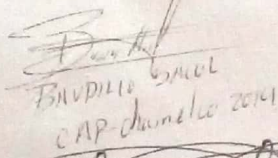 BAUDILIO SACUL
CAP-chamelco 2019